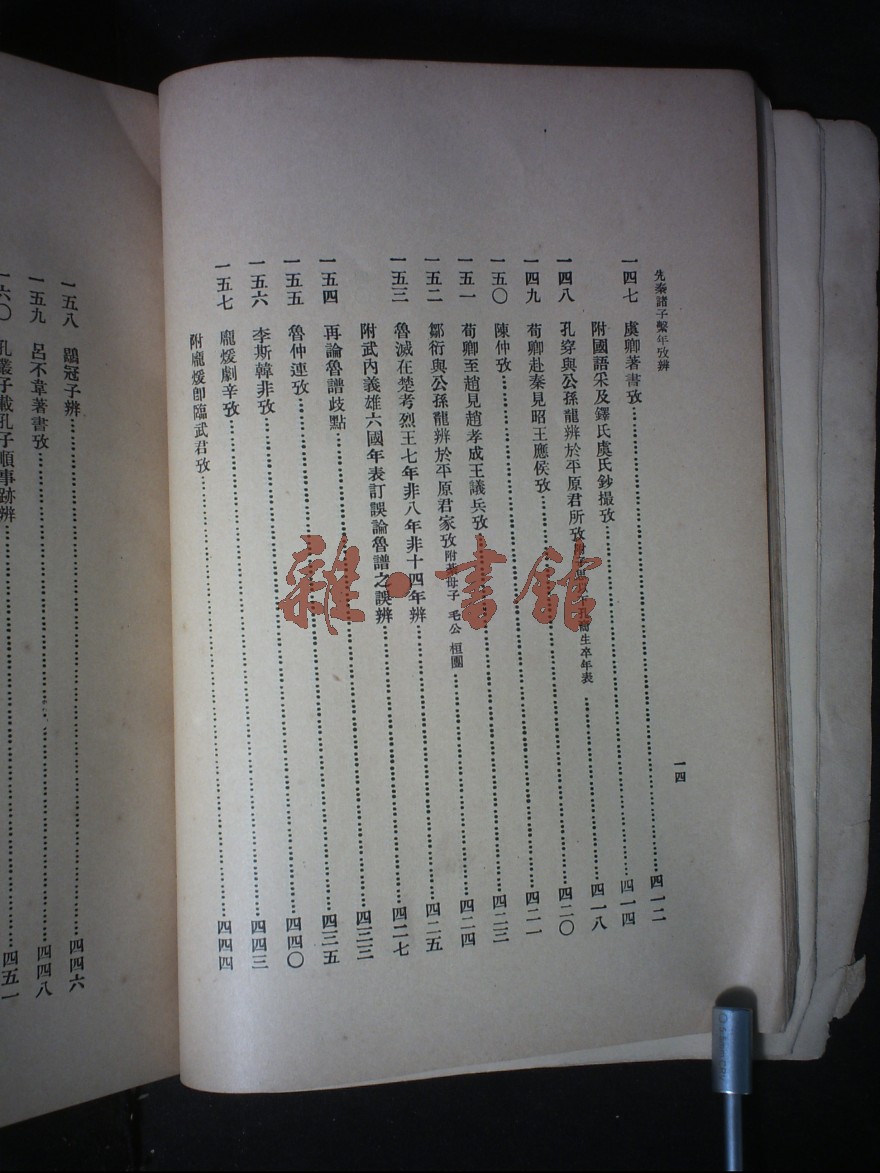 先秦諸子繫年攷辨 一四
一四七 虞卿著書攷……四一二
附國語采及鐸氏虞氏鈔撮攷……四一四
一四八 孔穿與公孫龍辨於平原君所攷 附子思以下孔裔生卒年表……四一八
一四九 荀卿赴秦見昭王應侯攷……四二〇
一五〇 陳仲攷……四二一
一五一 荀卿至趙見趙孝成王議兵攷……四二三
一五二 鄒衍與公孫龍辨於平原君家攷 附綦母子 毛公 桓團……四二四
一五三 魯滅在楚考烈王七年非八年非十四年辨……四二五
附武內義雄六國年表訂誤論魯譜之誤辨……四二七
一五四 再論魯譜歧點……四三三
一五五 魯仲連攷……四三五
一五六 李斯韓非攷……四四〇
一五七 龐煖劇辛攷……四四三
附龐煖卽臨武君攷……四四四
一五八 鶡冠子辨……四四六
一五九 呂不韋著書攷……四四八
一六〇 孔叢子載孔子順事跡辨……四五一
雜·書館